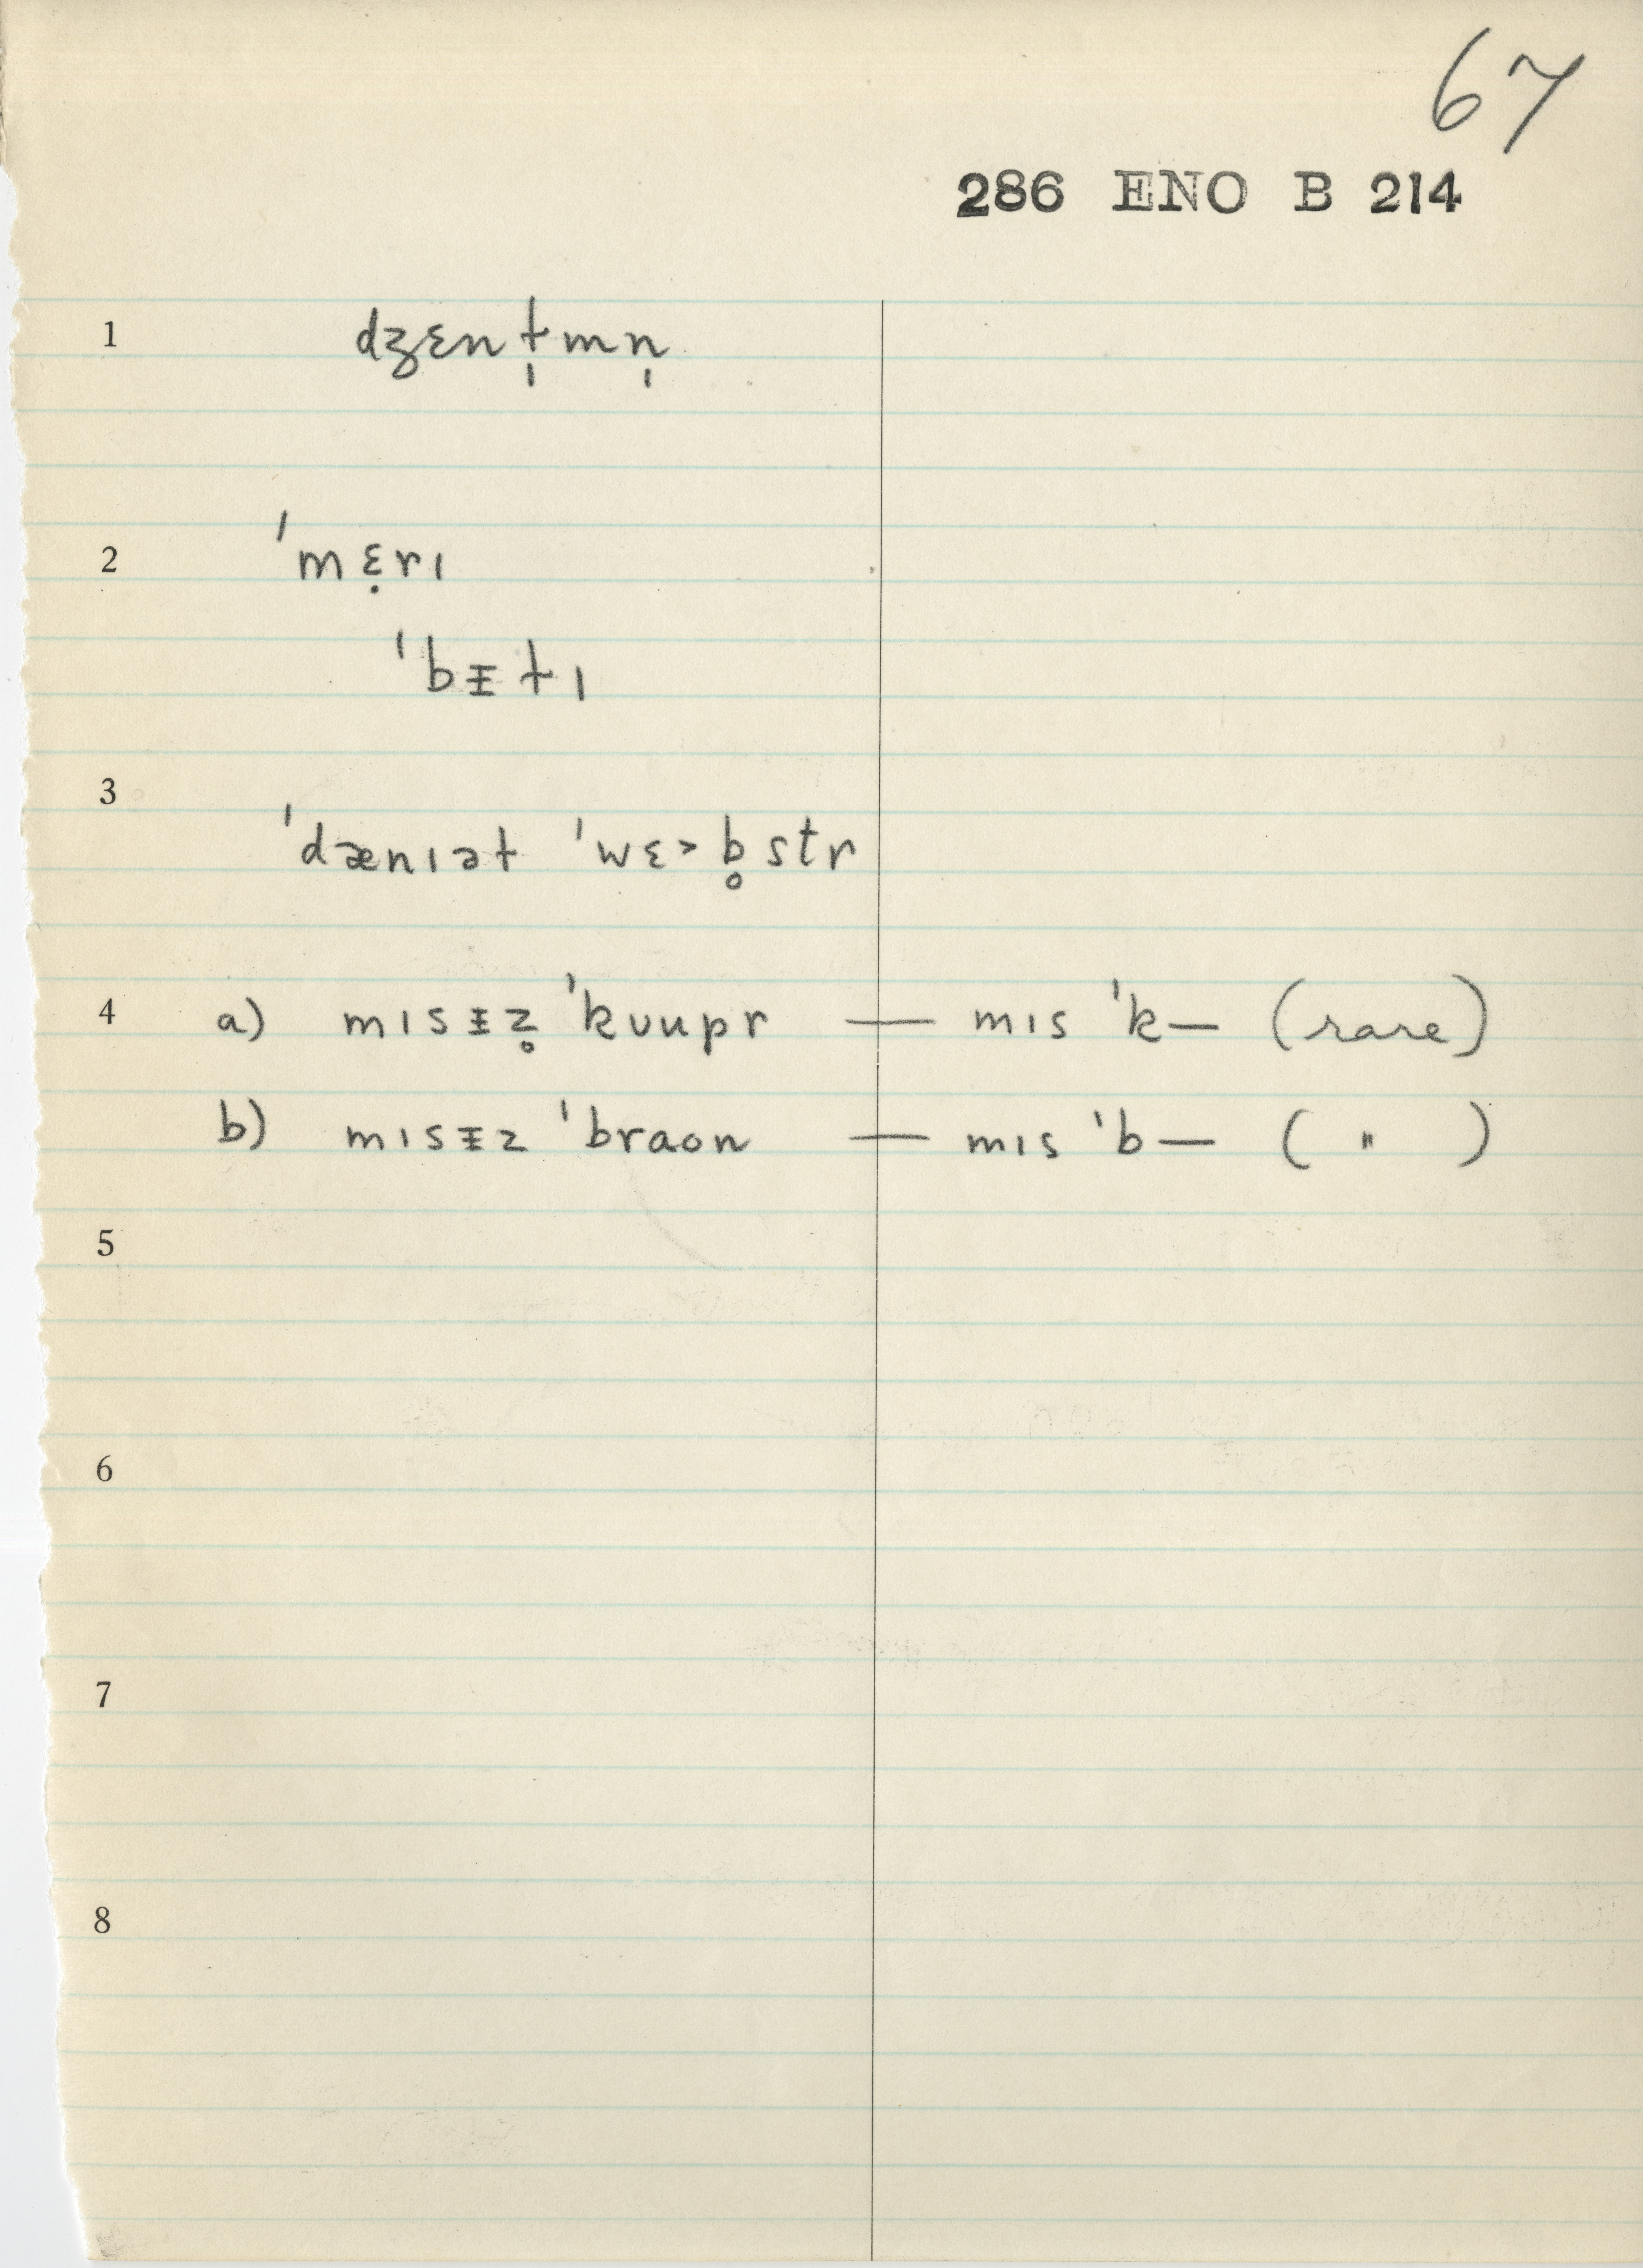 67
286 ENO B 214
1 dʒɛnɫ̩mn̩
2 ˈmɛ̣rɪ
ˈbᵻɫɪ
3
ˈdænɪəɫ ˈwɛ˃b̥str
4 a) mɪsᵻz̥ ˈkʊupr — mɪs ˈk— (rare)
b) mɪsᵻz ˈbraʊn — mɪs ˈb— ( " )
5
6
7
8